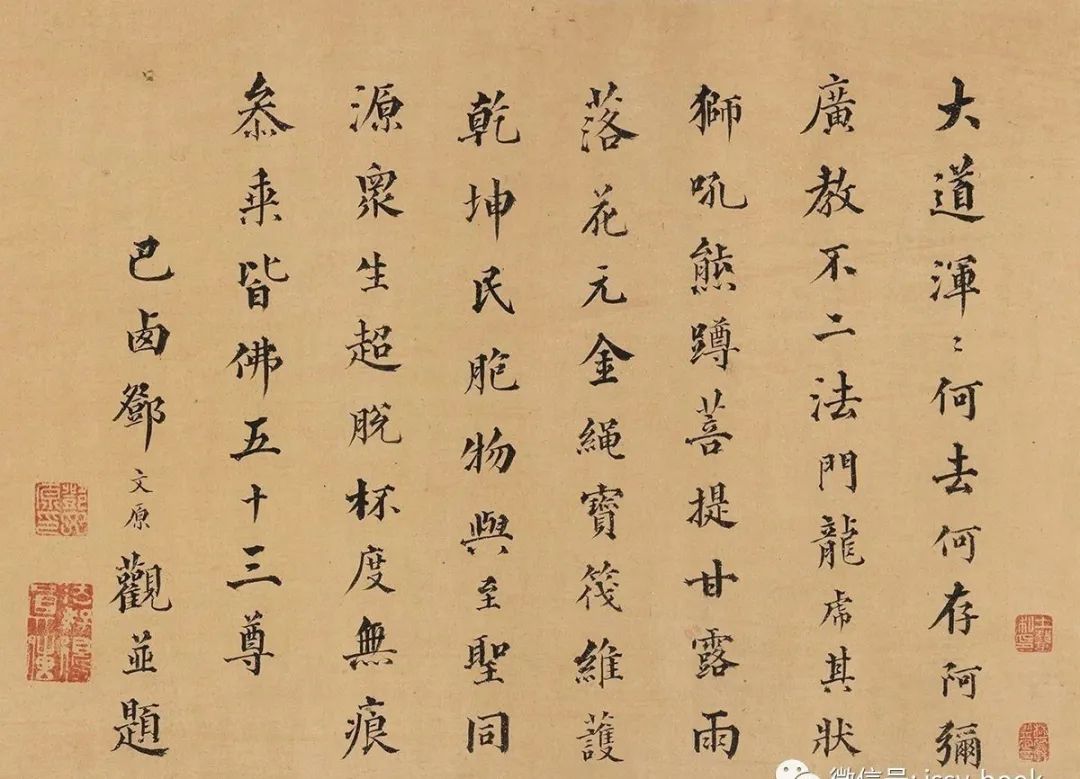 大道渾〻何去何存阿彌
廣教不二法門龍虎其狀
獅吼熊蹲菩提甘露雨
落花元金繩寶筏維護
乾坤民胞物與至聖同
源衆生超脫杯度無痕
叅乘皆佛五十三尊
巴西鄧文原觀並題
微信号: jssy_book